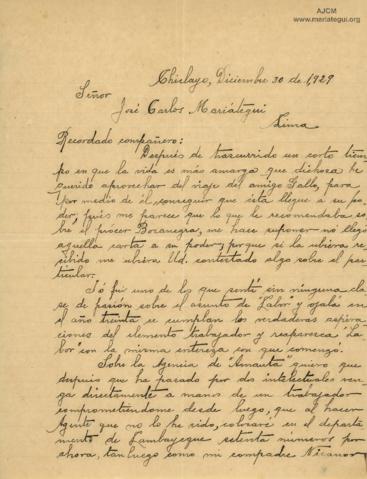 AJCM
www.mariategui.org
Chiclayo, Diciembre 30 de 1929
Señor
José Carlos Mariátegui
Lima
Recordado compañero:
Después de trascurrido un corto tiem-
po en que la vida es más amarga que dichosa he
querido aprovechar del viaje del amigo Sallo, para
por medio de él, conseguir que ésta llegue a su po-
der, pués me parece que lo que le recomendaba so-
bre el prócer me hace suponer no llegó
aquella carta a su poder; porque si la ubiera re-
cibido me ubiera Ud. contestado algo sobre el par-
ticular.
Yó fuí uno de los que sentí sin ninguna cla-
se de pasión sobre el asunto de "Labor" y ojalá en
el año treinta se cumplan las verdaderas aspira-
ciones del elemento trabajador y reaparesca "La-
bor" con la misma entereza con que comenzó.
Sobre la Agencia de "Amauta" quiero que
después que ha pasado por dos intelectuales ven-
ga directamente a manos de un trabajador
comprometiéndome desde luego, que al hacer
Agente que no lo he sido, colocaré en el departa-
mento de Lambayeque setenta números por
ahora, tan luego como mi compadre Nicanor